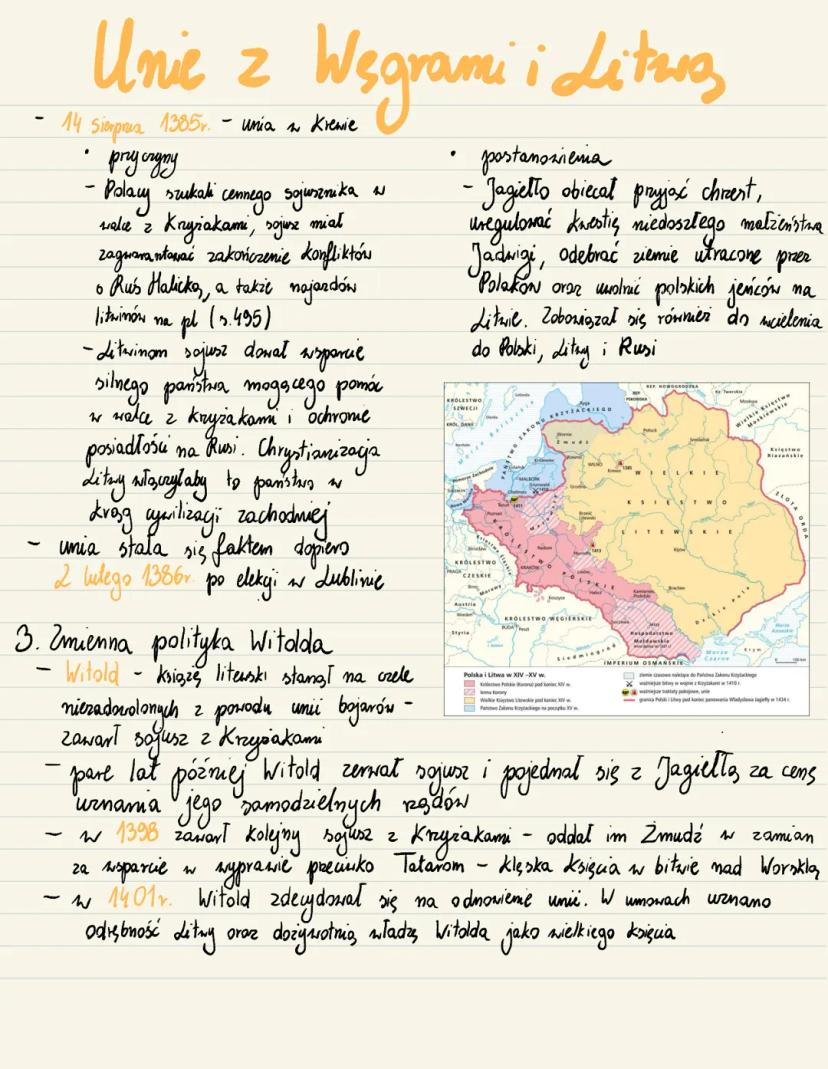 Unie z Węgrami i Litwą
- 14 sierpnia 1385r. - unia w Krewie
• przyczyny
- Polacy szukali cennego sojusznika w
walce z Krzyżakami, sojusz miał
zagwarantować zakończenie konfliktów
o Ruś Halicką, a także najazdów
litwinów na pl (s.495)
- Litwinom sojusz dawał wsparcie
silnego państwa mogącego pomóc
w walce z krzyżakami i ochronie
posiadłości na Rusi. Chrystianizacja
Litwy włączyłaby to państwo w
krąg cywilizacji zachodniej
- unia stała się faktem dopiero
2 lutego 1386r. po elekcji w Lublinie
• postanowienia
- Jagiełło obiecał przyjąć chrzest,
uregulować kwestię niedoszłego małżeństwa
Jadwigi, odebrać ziemie utracone przez
Polaków oraz uwolnić polskich jeńców na
Litwie. Zobowiązał się również do wcielenia
do Polski, Litwy i Rusi
KRÓLESTWO
SZWECJI
KRÓL. DANII
Morze Bałtyckie
PAŃSTWO ZAKONU KRZYŻACKIEGO
Ryga
REP. PSKOWSKA
REP. NOWOGRODZKA
Ks. Twerskie
Moskwa
Wielkie Księstwo
Moskiewskie
Księstwo
Riazańskie
ZŁOTA ORDA
Żmudź
Połock
Smoleńsk
WILNO
Krewo
1385
Królewiec
Gdańsk
MALBORK
Grunwald
Toruń
1411
Poznań
WIELKIE
KSIĘSTWO
LITEWSKIE
Brześć
Litewski
Kijów
KRÓLESTWO POLSKIE
Radom
Horodło
1413
KRAKÓW
Lwów
Halicz
Kamieniec
Podolski
Bracław
Dzikie Pola
Wrocław
PRAGA
KRÓLESTWO
CZESKIE
Morawy
Austria
Styria
Koszyce
BUDA
Peszt
KRÓLESTWO WĘGIERSKIE
Siedmiogród
Suczawa
Jassy
Hospodarstwo
Mołdawskie
IMPERIUM OSMAŃSKIE
Morze
Czarne
Krym
Morze
Azowskie
100 km
Polska i Litwa w XIV –XV w.
Królestwo Polskie (Korona) pod koniec XIV w.
lenna Korony
Wielkie Księstwo Litewskie pod koniec XIV w.
Państwo Zakonu Krzyżackiego na początku XV w.
ziemie czasowo należące do Państwa Zakonu Krzyżackiego
ważniejsze bitwy w wojnie z Krzyżakami w 1410 r.
ważniejsze traktaty pokojowe, unie
granica Polski i Litwy pod koniec panowania Władysława Jagiełły w 1434 r.
3. Zmienna polityka Witolda
- Witold - książę litewski stanął na czele
niezadowolonych z powodu unii bojarów -
zawarł sojusz z Krzyżakami
- parę lat później Witold zerwał sojusz i pojednał się z Jagiełłą za cenę
uznania jego samodzielnych rządów
- w 1398 zawarł kolejny sojusz z Krzyżakami - oddał im Żmudź w zamian
za wsparcie w wyprawie przeciwko Tatarom - klęska księcia w bitwie nad Worsklą
- w 1401r. Witold zdecydował się na odnowienie unii. W umowach uznano
odrębność Litwy oraz dożywotnią władzę Witolda jako wielkiego księcia